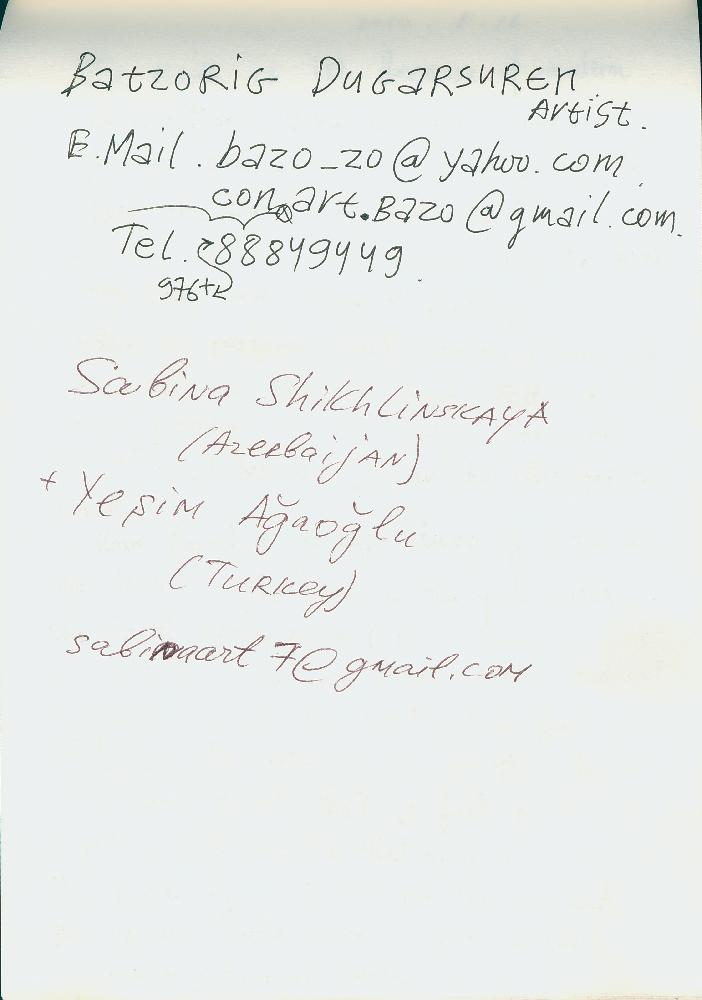 Batzorig Dugarsuren
Artist.
E.Mail. bazo_zo@yahoo.com
con.art.Bazo@gmail.com.
Tel. 88849449.
976+
Sabina Shikhlinskaya
(Azerbaijan)
+ Yeşim Ağaoğlu
(Turkey)
sabinaart7@gmail.com